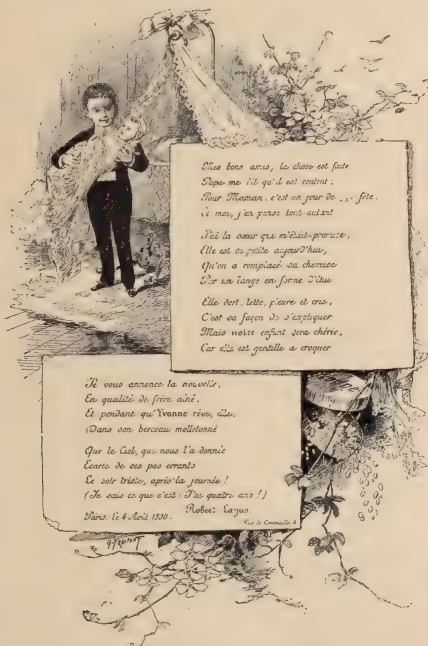 Mes bons amis, la chose est faite
Papa me dit qu'il est content ;
Pour Maman, c'est un jour de fête.
Et moi, j'en pense tout autant
J'ai la sœur qui m'était promise,
Elle est si petite aujourd'hui,
Qu'on a remplacé sa chemise
Par un lange en forme d'étui
Elle dort, tette, pleure et crie,
C'est sa façon de s'expliquer
Mais notre enfant sera chérie,
Car elle est gentille a croquer
Je vous annonce la nouvelle,
En qualité de frère aîné,
Et pendant qu'Yvonne rêve, elle,
Dans son berceau molletonné
Que le Ciel, qui nous l'a donnée
Ecarte de ses pas errants
Le soir triste, après la journée !
(Je sais ce que c'est : J'ai quatre ans !)
Robert
Paris, le 4 Août
Rue de